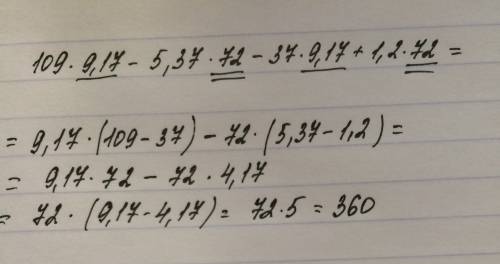 109 · 9,17 - 5,37 · 72 - 37 · 9,17 + 1,2 · 72 =
= 9,17 · (109 - 37) - 72 · (5,37 - 1,2) =
= 9,17 · 72 - 72 · 4,17
= 72 · (9,17 - 4,17) = 72 · 5 = 360